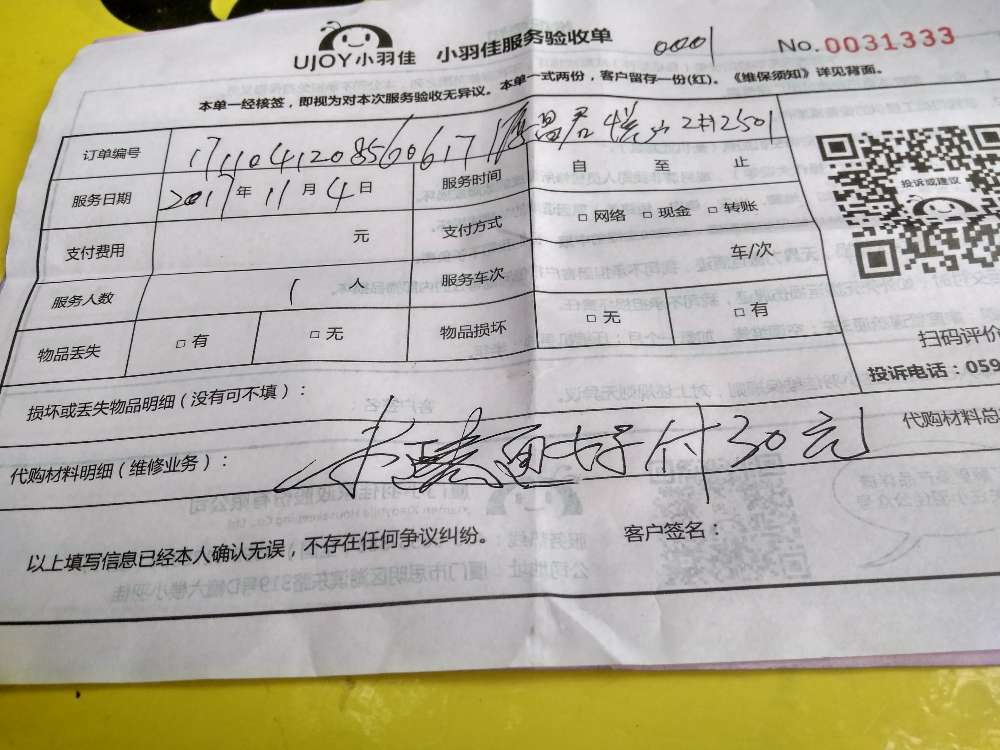 UJOY小羽佳 小羽佳服务验收单 0001 No.0031333
本单一经核签，即视为对本次服务验收无异议。本单一式两份，客户留存一份(红)。《维保须知》详见背面。
订单编号
服务日期 2017年 11月 4日 服务时间 自 至 止
支付费用 元 支付方式 □ 网络 □ 现金 □ 转账
服务人数 1 人 服务车次 车/次
物品丢失 □ 有 □ 无 物品损坏 □ 无 □ 有
投诉或建议
扫码评价
投诉电话：059
损坏或丢失物品明细（没有可不填）：
代购材料明细（维修业务）： 付30元 代购材料总
以上填写信息已经本人确认无误，不存在任何争议纠纷。 客户签名：